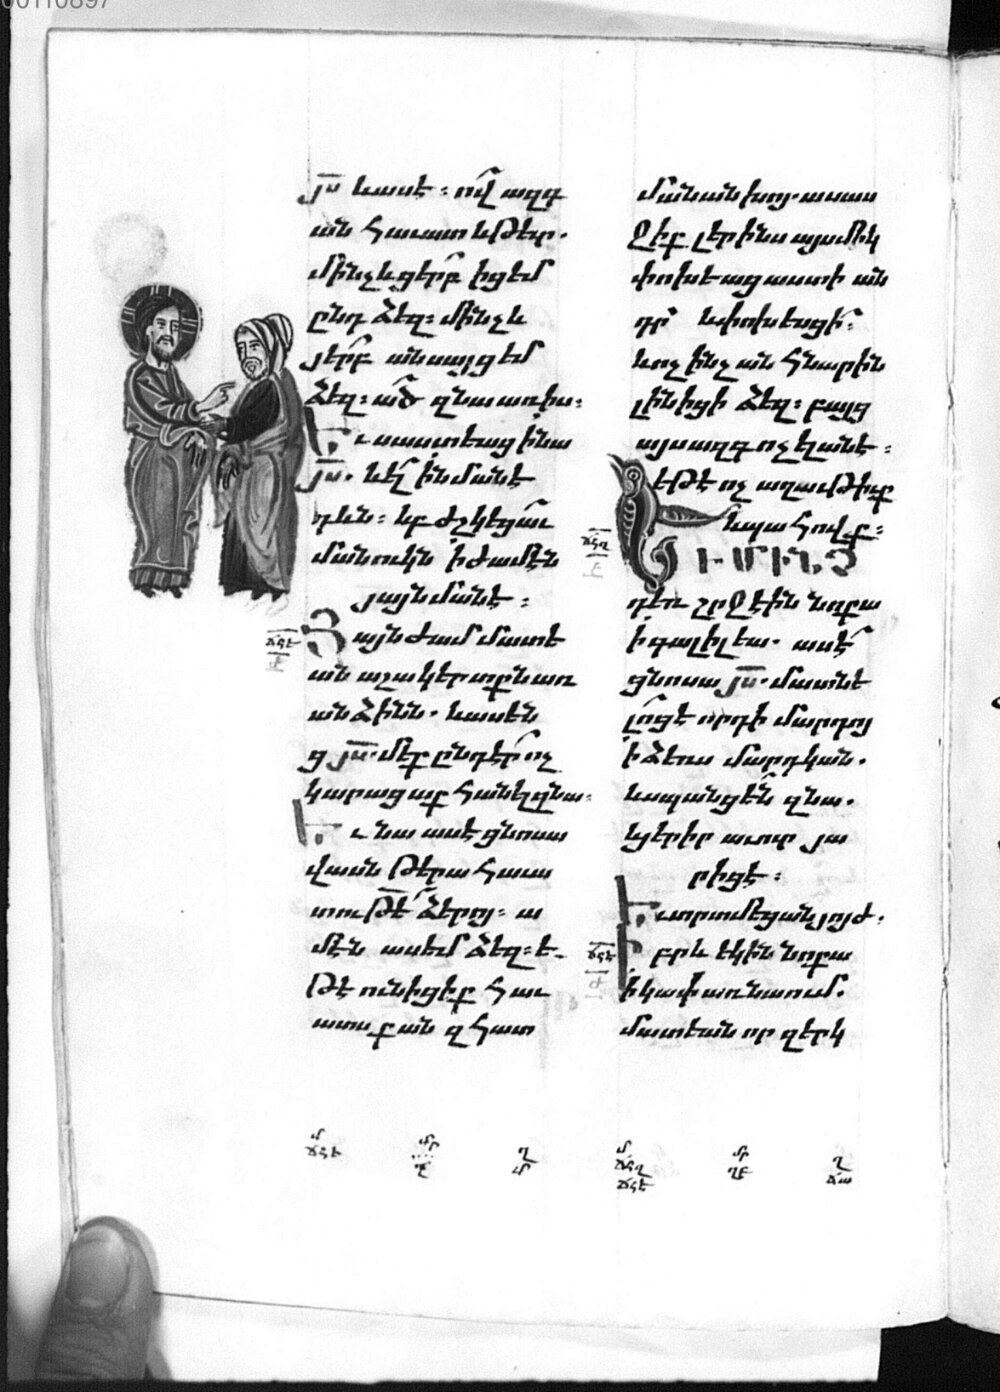 00110897
յս եւ ասէ։ ո՛վ ազգ
ան հաւատ եւ թեւր.
մինչեւ ցե՞րբ իցեմ
ընդ ձեզ։ մինչեւ
ցե՞րբ անսայցեմ
ձեզ։ ած զնա առ իս։
Եւ սաստեաց ի նա
յս. եւ ել ի նմանէ
դեւն։ եւ բժշկեցաւ
մանուկն ի ժամէն
յայնմանէ։
Յայնժամ մատե
ան աշակերտքն առ
անձինն. եւ ասեն
ց յս. մեք ընդէ՞ր ոչ
կարացաք հանել զնա։
Եւ նա ասէ ցնոսա
վասն թերահաւա
տութե ձերոյ։ ա
մէն ասեմ ձեզ։ ե
թէ ունիցիք հաւ
ատս քան զհատ
մանանխոյ. ասաս
ջիք լերինս այսմիկ
փոխեաց աստի ան
դր եւ փոխեսցի։
եւ ոչ ինչ անհնարին
լինիցի ձեզ։ բայց
այս ազգ ոչ ելանէ։
եթէ ոչ աղաւթիւք
եւ պահովք։
ՃՀԶ
ԻՒ ՄԻՆՉ
դեռ շրջէին նոքա
ի գալիլեա. ասէ
ցնոսա յս. մատնե
լոց է որդի մարդոյ
ի ձեռս մարդկան.
եւ սպանցեն զնա.
եւ յերիր աւուր յա
րիցէ։
Եւ տրտմեցան յոյժ.
ՃՀԷ
Եւ իբրեւ եկին նոքա
ի կափառնաում.
մատեան որ զերկ
մ
ՃՀԵ
մր
ղ
մ
ՃՀԶ
ՃՀԷ
մր
ղ